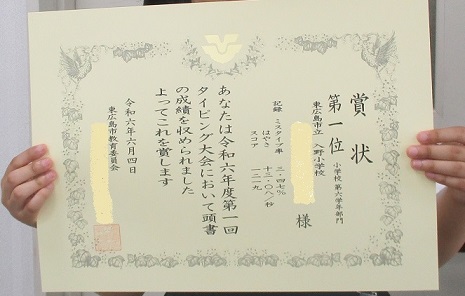 賞状
第一位 小学校 第六学年部門
東広島市立 野小学校
様
記録 ミスタイプ率 三・四七%
はやさ 十三・〇八/秒
スコア 一二一九
あなたは令和六年度第一回
タイピング大会において頭書
の成績を収められました
よってこれを賞します
令和六年六月四日
東広島市教育委員会